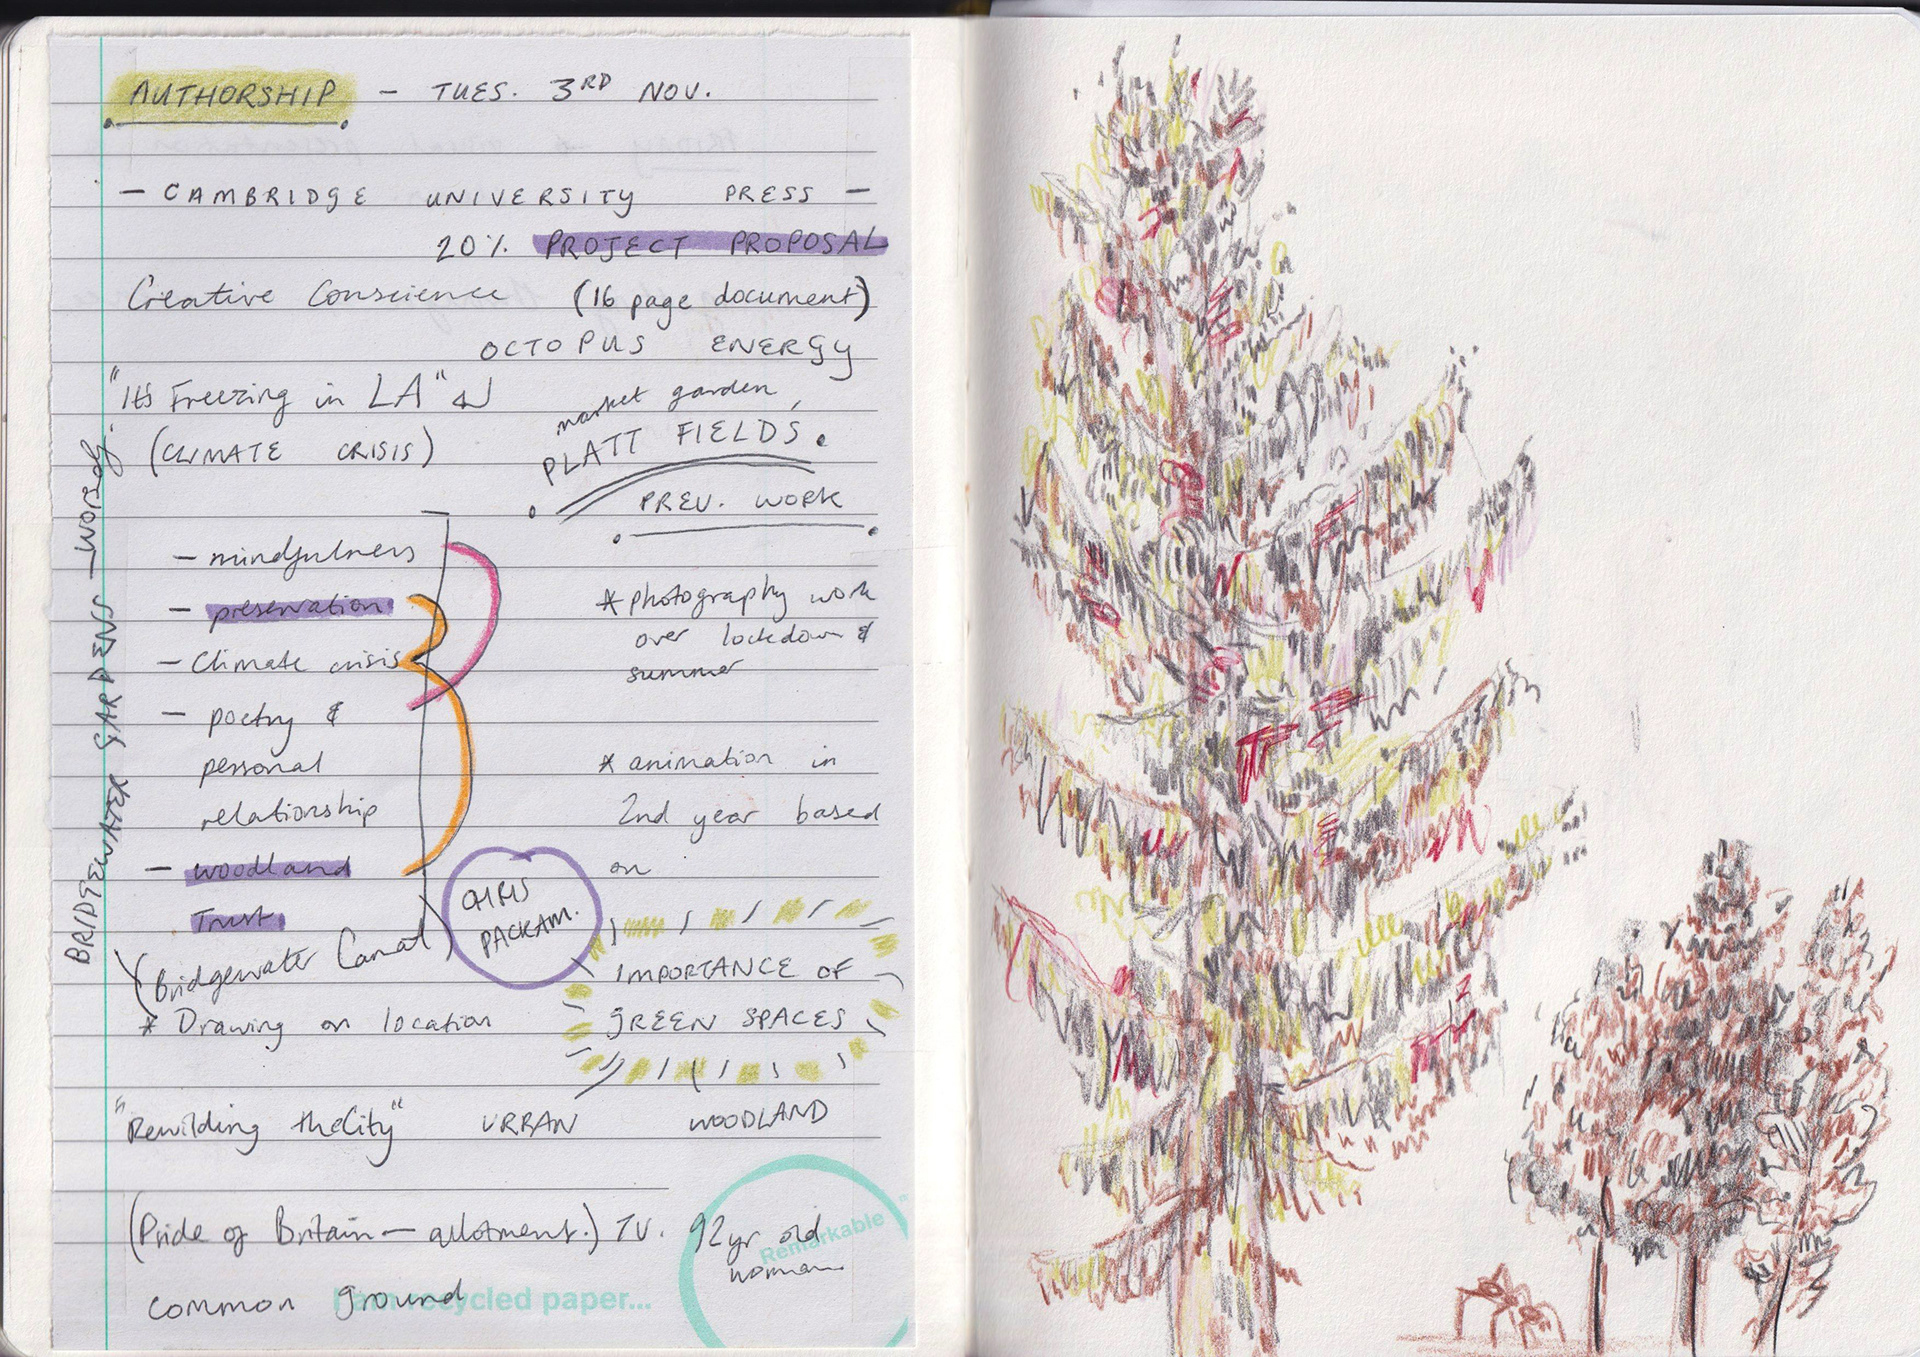 AUTHORSHIP - TUES. 3RD NOV.
- CAMBRIDGE UNIVERSITY PRESS -
20% PROJECT PROPOSAL
Creative Conscience (16 page document)
OCTOPUS ENERGY
"It's Freezing in LA"
(CLIMATE CRISIS)
market garden,
PLATT FIELDS.
PREV. WORK
- mindfulness
- preservation
- Climate crisis
- poetry &
personal
relationship
- woodland
Trust
(Bridgewater Canal)
* Drawing on location
BRIDGEWATER GARDENS - WORSLEY
* photography work
over lockdown &
summer
* animation in
2nd year based
on
CHRIS
PACKAM.
IMPORTANCE OF
GREEN SPACES
"Rewilding the City" URBAN WOODLAND
(Pride of Britain - allotment.) TV. 92yr old
woman
Remarkable
common ground
I am recycled paper...